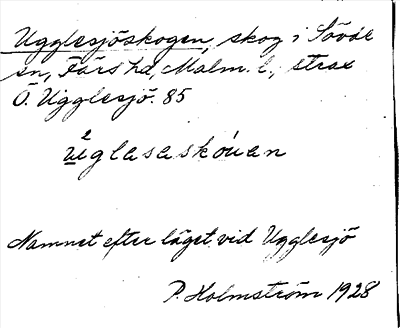 Ugglesjöskogen, skog i Sövde
sn, Färs hd, Malm. l., strax
Ö. Ugglesjö. 85
2
uglasaskóuan
Namnet efter läget vid Ugglesjö
P. Holmström 1928